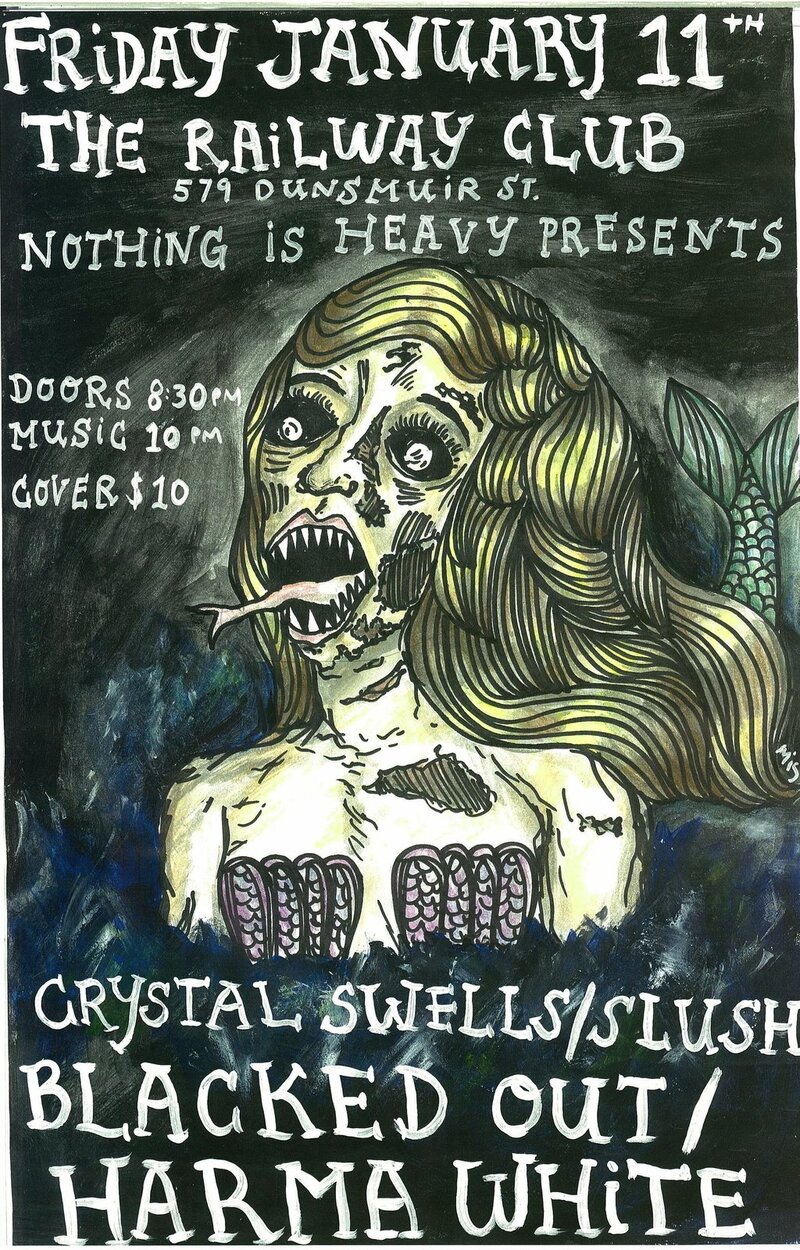 FRiDAY JANUARY 11TH
THE RAiLWAY CLUB
579 DUNSMUiR ST.
NOTHiNG iS HEAVY PRESENTS
DOORS 8:30PM
MUSiC 10 PM
COVER $10
CRYSTAL SWELLS/SLUSH
BLACKED OUT/
HARMA WHiTE